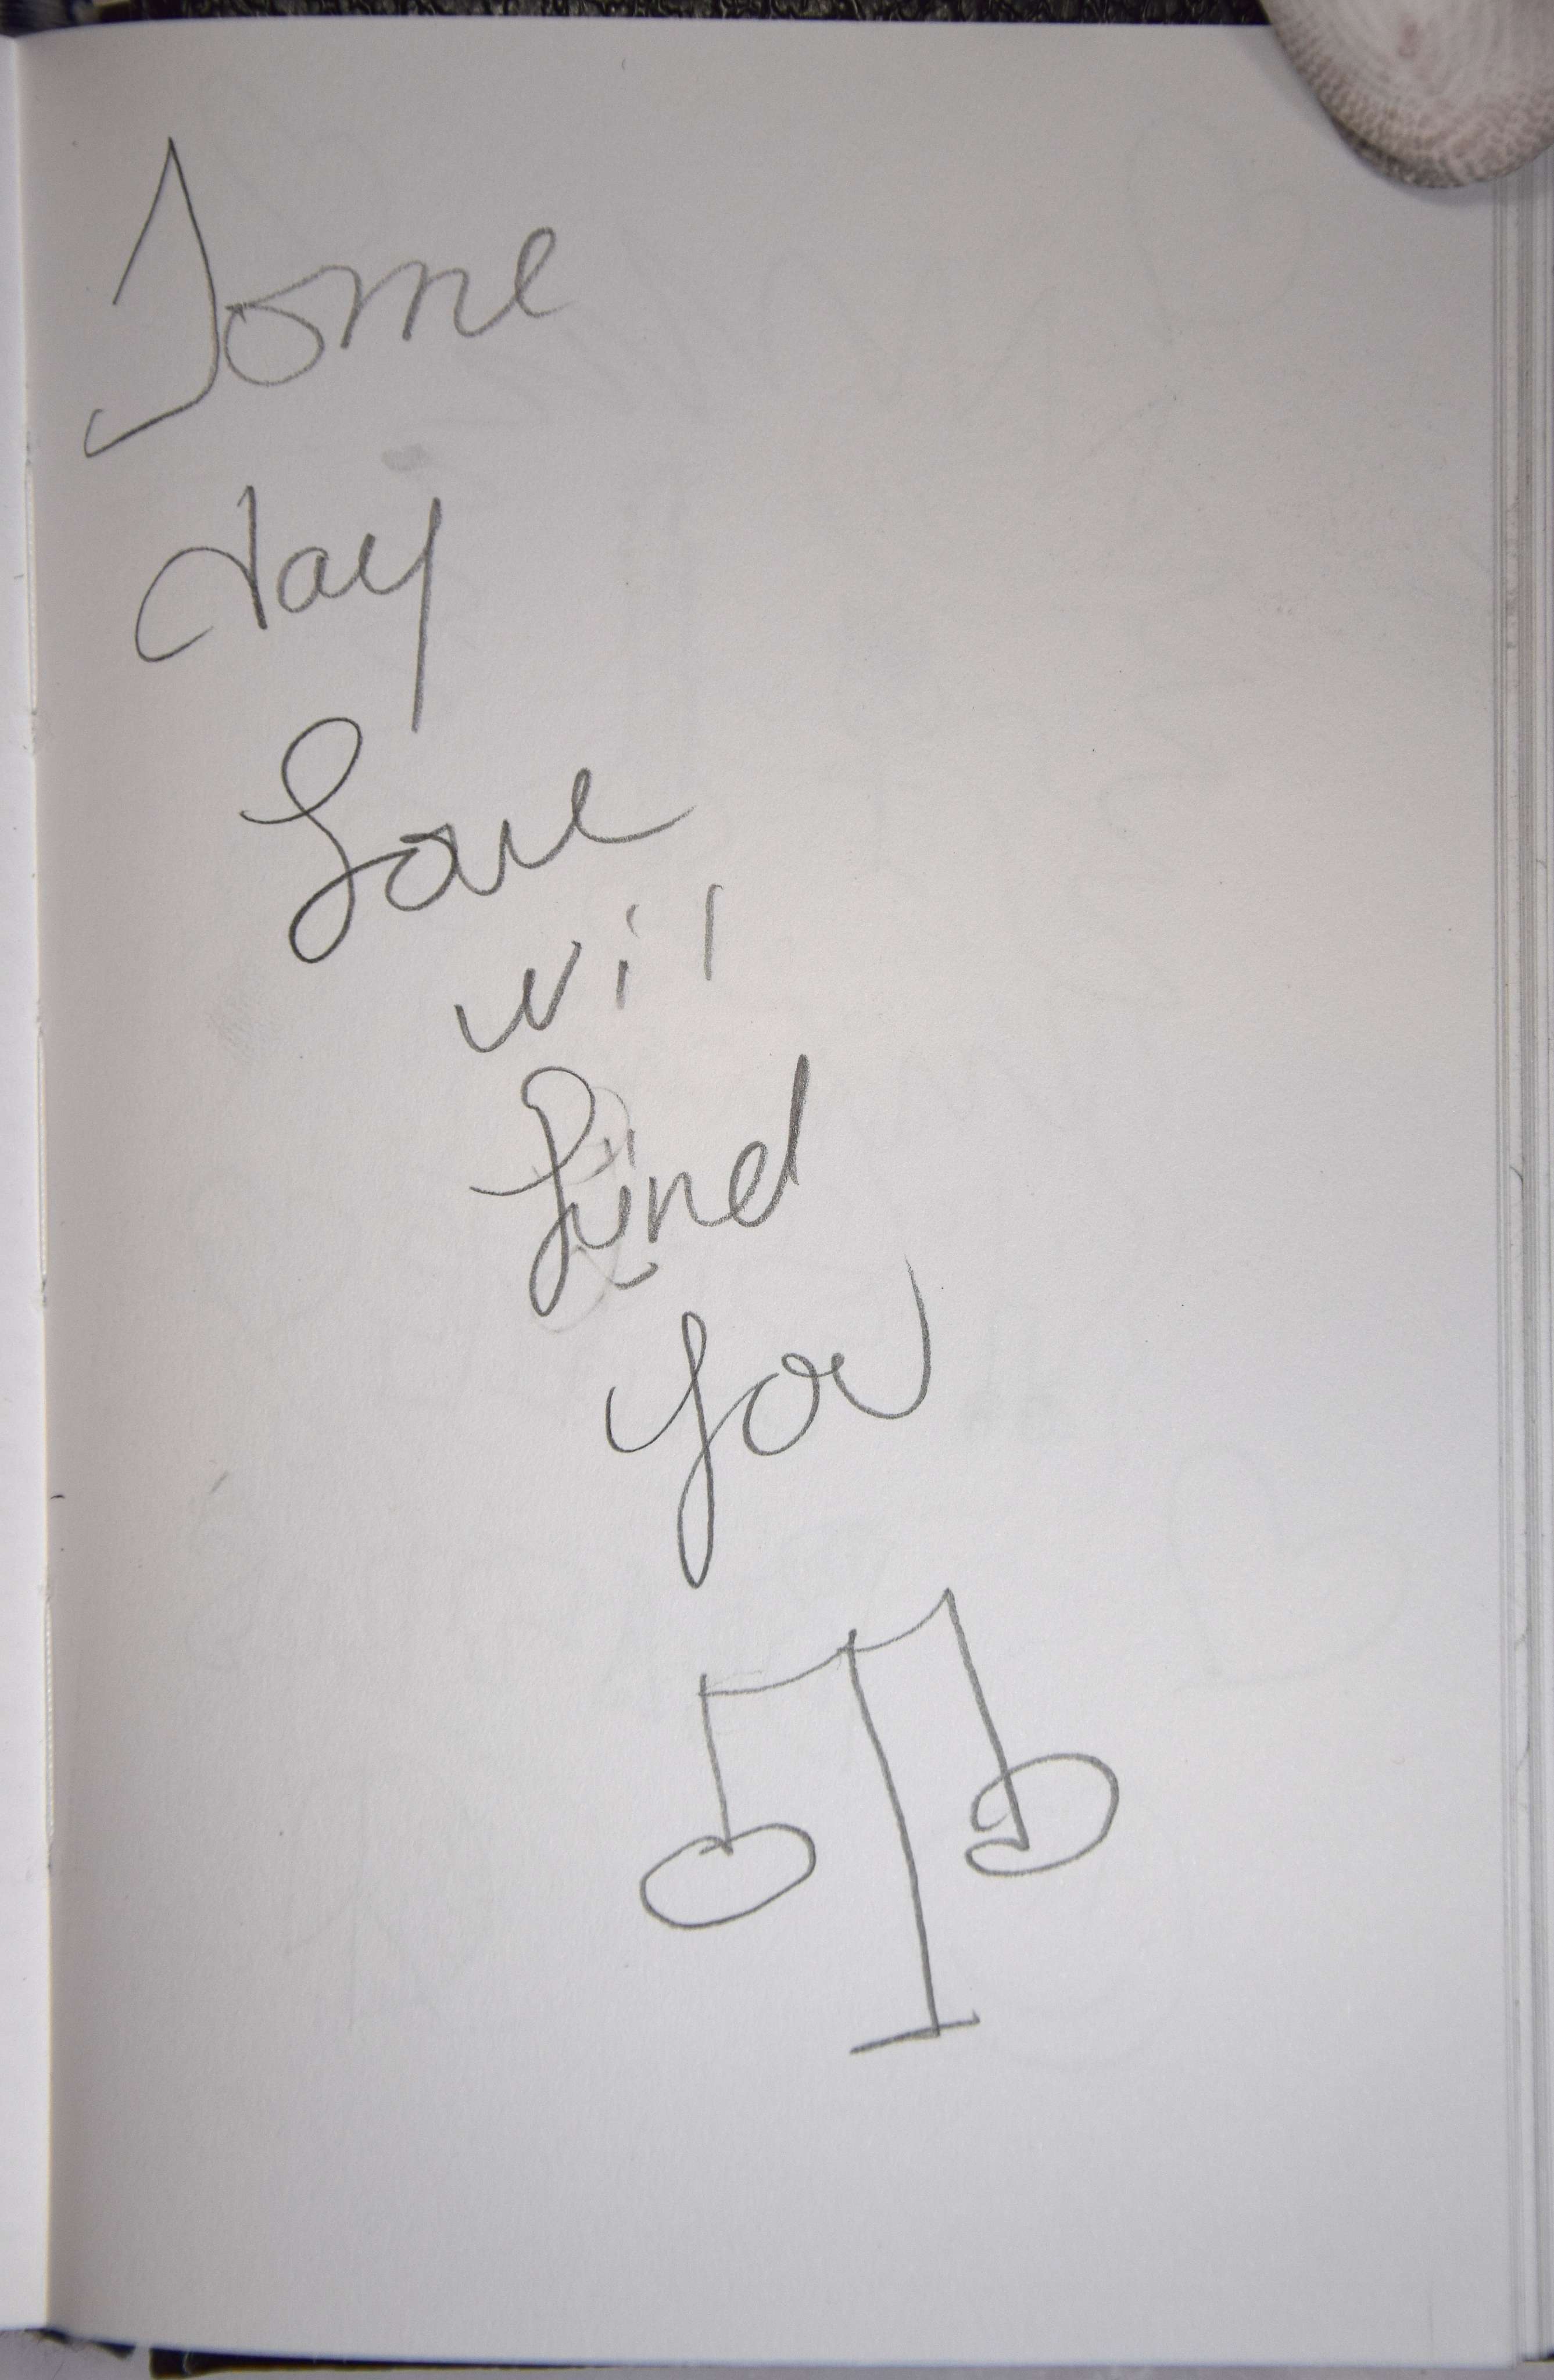 Some
day
Love
wil
find
you